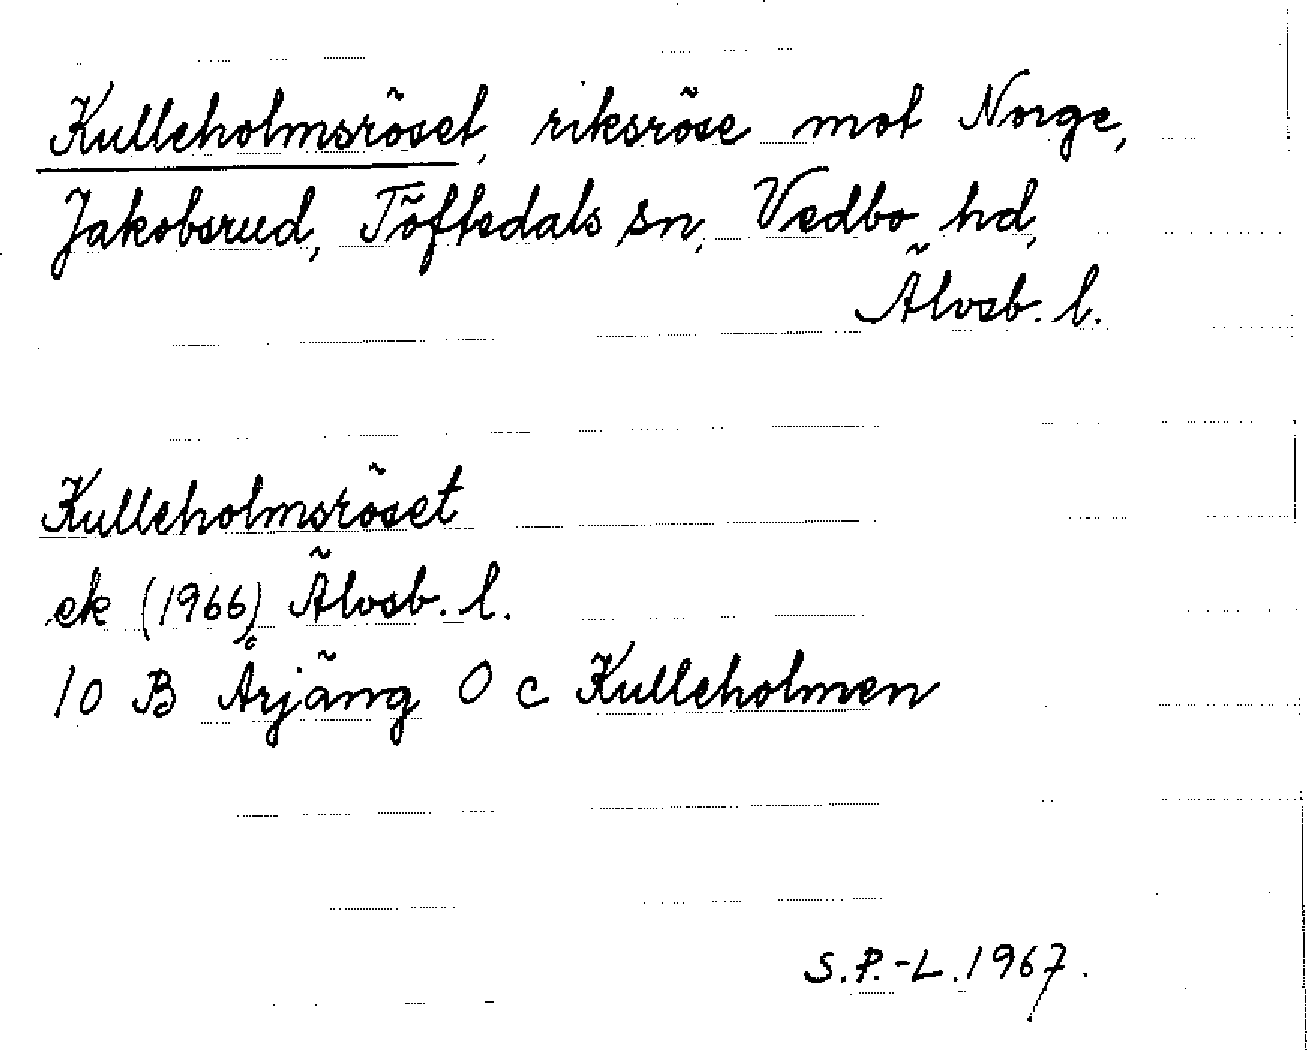 Kulleholmsröset, riksröse mot Norge,
Jakobsrud, Töftedals sn, Vedbo hd,
Älvsb. l.
Kulleholmsröset
ek (1966) Älvsb. l.
10 B Årjäng 0 c Kulleholmen
S.P.-L. 1967.